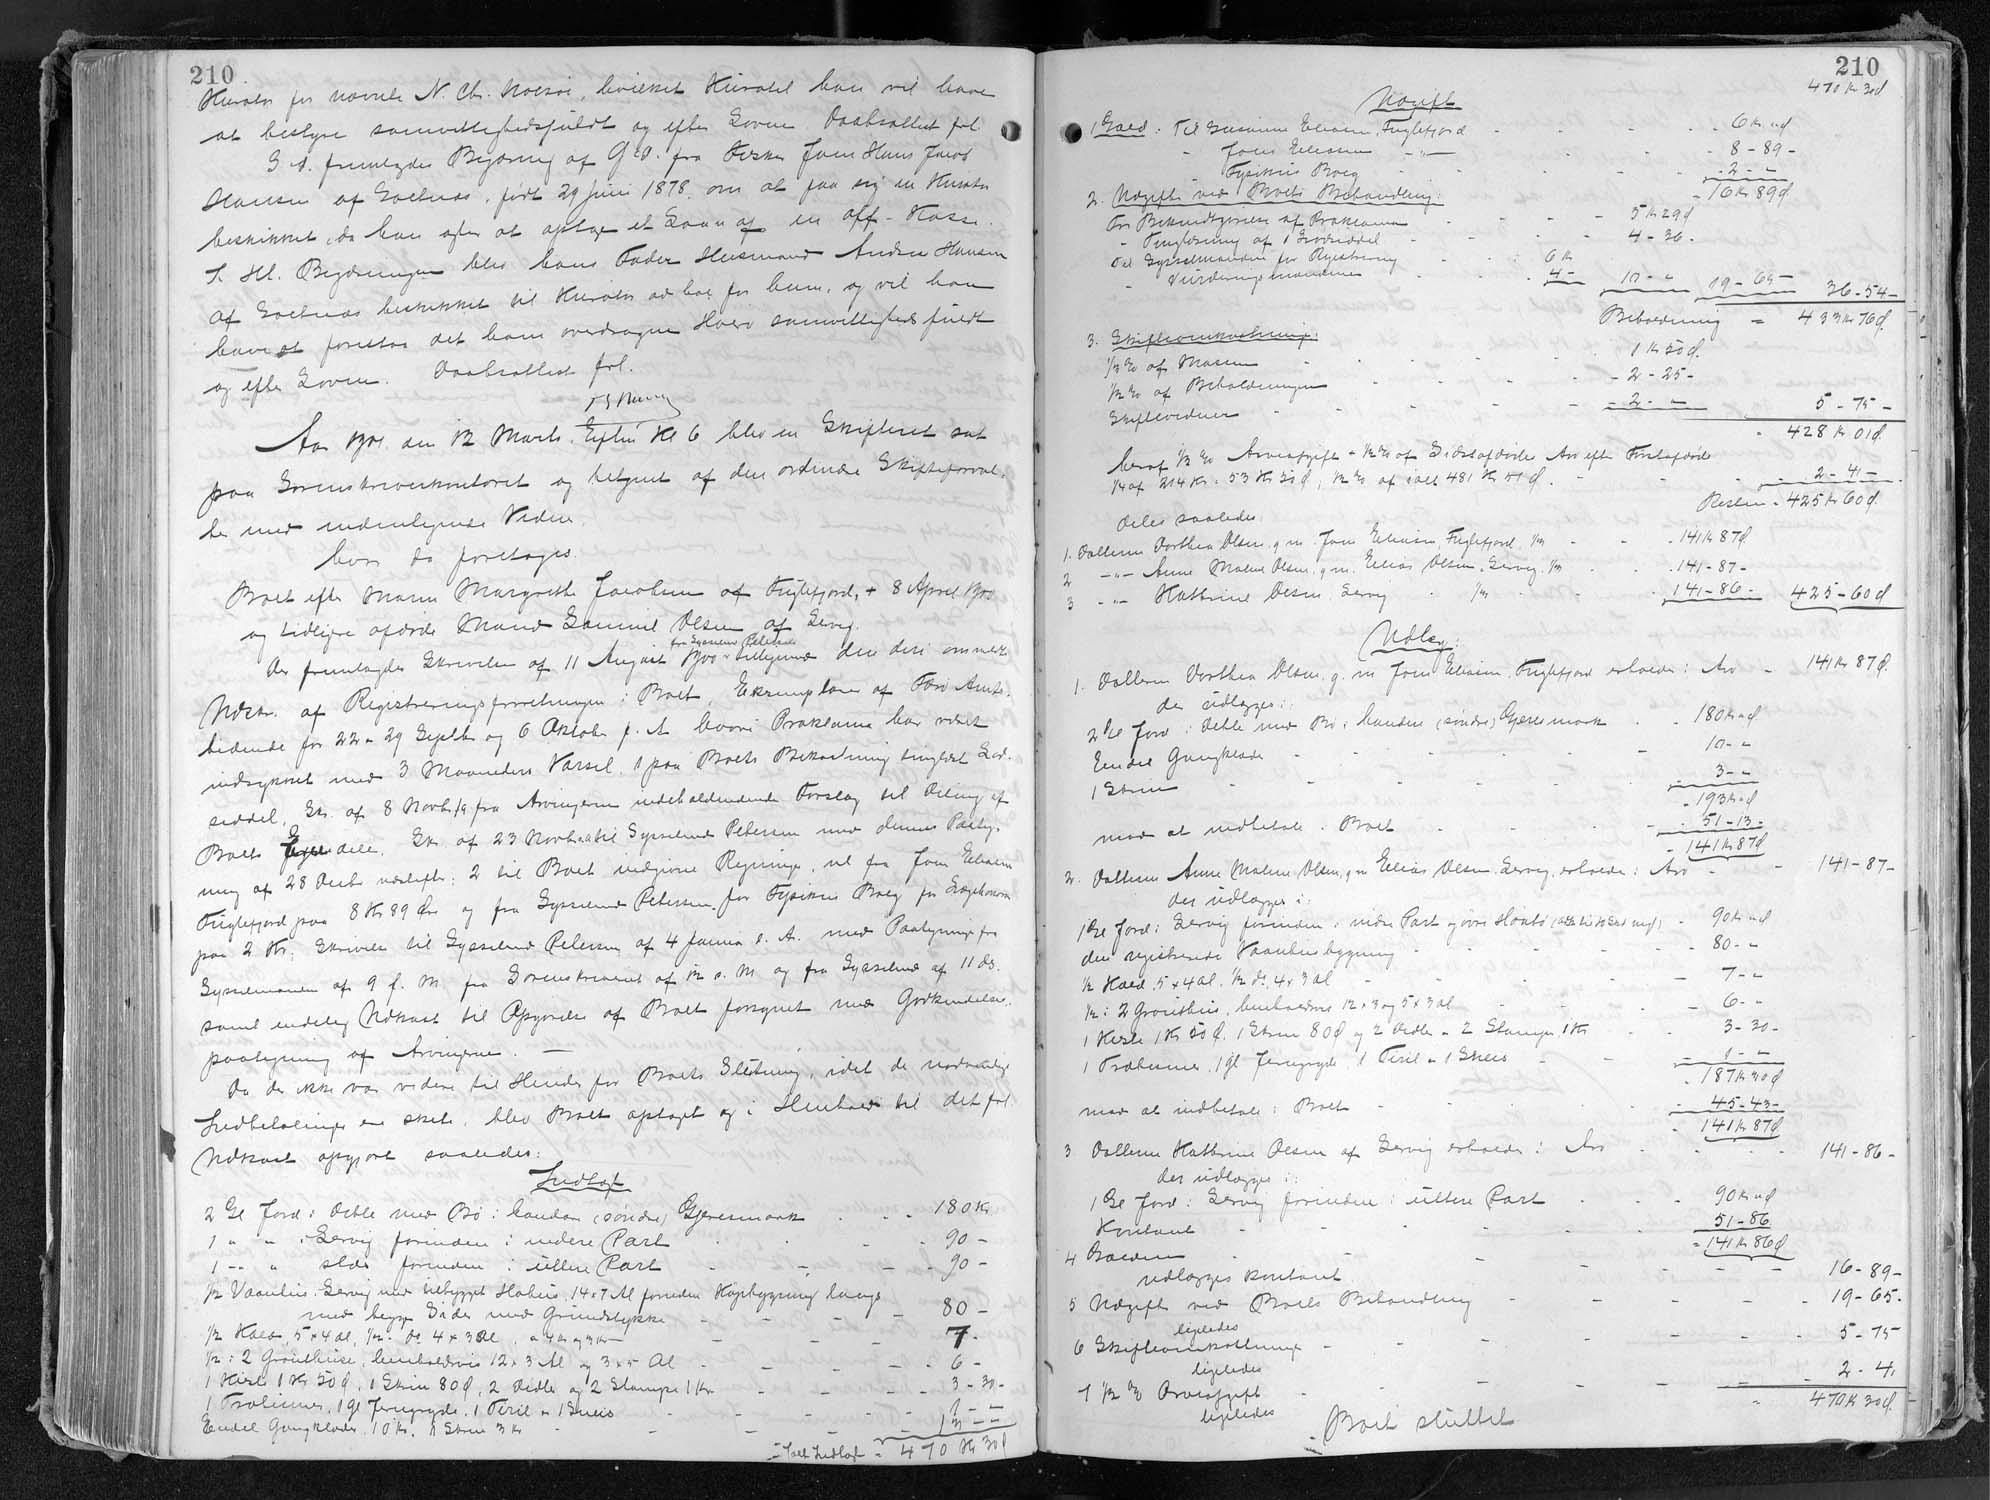 210
Kurator for nævnte N. Chr. Nolsøe, hvilket Kuratel han vil have
at bestyre samvittighedsfuldt og efter Loven. Daabsattest fol.
S. D. fremlagdes Begjæring af G. D. fra Fisker Joen Hans Jacob
Hansen af Saltnæs, født 29 Juni 1878 om at faa sig en Kurator
beskikket, da han agter at optage et Laan af en off. Kasse.
I. Hl. Begjæringen blev hans Fader Husmand Andreas Hansen
af Saltnæs beskikket til Kurator ad hoc for ham, og vil han
have at foretaa det ham overdragne Hverv samvittighedsfuldt
og efter Loven. Daabsattest fol.
Aar 1901 den 12 Marts Eftm Kl 6 blev en Skifteret sat
paa Sorenskriverkontoret og betjent af den ordinære Skifteforval-
ter med undertegnede Vidner.
hvor da foretoges
Boet efter Maren Margrethe Jacobsen af Fuglefjord, + 8 April 1900
og tidligere afdøde Mand Samuel Olsen af Lervig.
Der fremlagdes Skrivelse af 11 August 1900 fra Sysselmd Petersen vedliggende den deri ommeldte
Udskr. af Registreringsforretningen i Boet, Exemplarer af Færø Amts-
tidende for 22 - 29 Septbr og 6 Oktober f. A. hvori Proklama har været
indrykket med 3 Maaneders Varsel, 1 paa Boets Bekostning tinglæst Lod-
seddel, Skr. af 8 Novbr fra Arvingerne indeholdende Forslag til Deling af
Boets Eiendele, Skr. af 23 Novbr til Sysselmd Petersen med dennes Paateg-
ning af 28 Decbr næstefter: 2 til Boet indgivne Regninger, nl fra Joen Eliasen
Fuglefjord paa 8 Kr 89 Øre og fra Sysselmd Petersen for Fysikus Boeg for Lægehonorar
paa 2 Kr; Skrivelse til Sysselmd Petersen af 4 Januar d. A. med Paategninger fra
Sysselmanden af 9 f. M. fra Sorenskriveriet af 12 s. M og fra Sysselmd af 11 ds.
samt endelig Udkast til Opgjørelse af Boet forsynet med Godkendelses-
paategning af Arvingerne. —
Da der ikke var videre til Hinder for Boets Slutning, idet de nødvendige
Indbetalinger ere skete, blev Boet optaget og i Henhold til det fol.
Udkast opgjort saaledes:
Indtægt
2 Gl Jord: Deble med Bø: handan (søndre) Gjeresmark - - - 180 Kr
1 " " : Lervig forinden: nedere Part - 90 -
1 - " " sdes forinden: ültere Part - 90 -
½ Vaanhus: Lervig med tilbygget Hohus, 14×7 Al forneden Kopbygning langs
med begge Sider med Grundstykke - 80 -
½ Kald 5×4 al, ½ ds 4×3 al, a 4 Kr og 3 Kr - 7 -
½: 2 Grouthuse, henholdsvis 12×3 Al og 3×5 Al - 6 -
1 Kiste 1 Kr 50 Ø, 1 Skrin 80 Ø, 2 Dedler og 2 Stampe 1 Kr - 3 - 30 -
1 Træhimer, 1 gl Jerngryde, 1 Teril - 1 Skeis - 1 - -
Endel Gangklæder 10 Kr, 1 Skrin 3 Kr - 13 - -
Ialt Indtægt = 470 Kr 30 Ø
210
470 Kr 30 Ø
Udgift
1 Gæld: Til Susanne Eliasen, Fuglefjord - 6 Kr "Ø
- Joen Eliasen - " - 8 - 89 -
- Fysikus Boeg - 2 - -
- 16 Kr 89 Ø
2. Udgifter ved Boets Behandling:
For Bekendtgjørelse af Proklama - 5 Kr 29 Ø
- Tinglæsning af 1 Lodseddel - 4 - 36 -
Til Sysselmanden for Registrering - 6 Kr
- Vurderingsmændene - 4 - 10 - " 19 - 65 - 36 - 54 -
Beholdning = 433 Kr 76 Ø
3. Skifteomkostninger:
⅓ % af Massen - 1 Kr 50 Ø
½ % af Beholdningen - 2 - 25 -
Skiftevidner - 2 - - 5 - 75 -
428 Kr 01 Ø
heraf ½ % Arveafgift + ½ % af Sidstafdødes Arv efter Førstafdøde
¼ af 214 Kr = 53 Kr 50 Ø, ½ % af ialt 481 Kr 51 Ø - 2 - 41 -
Resten = 425 Kr 60 Ø
deles saaledes:
1. Datteren Dorthea Olsen, g. m. Joen Eliasen, Fuglefjord ⅓ - 141 Kr 87 Ø
2 - " - Anne Malene Olsen, g. m. Elias Olsen, Lervig ⅓ - 141 - 87 -
3 - " - Kathrine Olsen, Lervig ⅓ - 141 - 86 - 425 - 60 Ø
Udlæg:
1. Datteren Dorthea Olsen g. m Joen Eliasen, Fuglefjord erholder: Arv - 141 Kr 87 Ø
der udlægges i:
2 Gl Jord: Deble med Bø: handan (søndre) Gjeresmark - 180 Kr "Ø
Endel Gangklæder - 10 - "
1 Skrin - 3 - "
- 193 Kr "Ø
mod at indbetale i Boet - 51 - 13 -
- 141 Kr 87 Ø
2. Datteren Anne Malene Olsen, g m Elias Olsen, Lervig, erholder: Arv - 141 - 87 -
der udlægges i:
1 Gl Jord: Lervig forinden: nedre Part - 90 Kr "Ø
den registrerede Vaanhusbygning - 80 - "
½ Kald 5×4 al. ½ ds. 4×3 al - 7 - "
½: 2 Grouthuse, henholdsvis 12×3 og 5×3 al - 6 - "
1 Kiste 1 Kr 50 Ø, 1 Skrin 80 Ø og 2 Dedler - 2 Stampe 1 Kr - 3 - 30 -
1 Træhimer, 1 gl Jerngryde, 1 Teril - 1 Skeis - 1 - "
- 187 Kr 30 Ø
mod at indbetale i Boet - 45 - 43 -
- 141 Kr 87 Ø
3 Datteren Kathrine Olsen af Lervig erholder: Arv - 141 - 86 -
der udlægges i:
1 Gl Jord: Lervig forinden: ültere Part - 90 Kr "Ø
Kontant - 51 - 86
= 141 Kr 86 Ø
4 Gælden
udlægges kontant - 16 - 89 -
5 Udgifter ved Boets Behandling - 19 - 65 -
ligeledes
6 Skifteomkostninger - 5 - 75
ligeledes
7 ½ % Arveafgift - 2 - 41
ligeledes
470 Kr 30 Ø
Boet sluttet